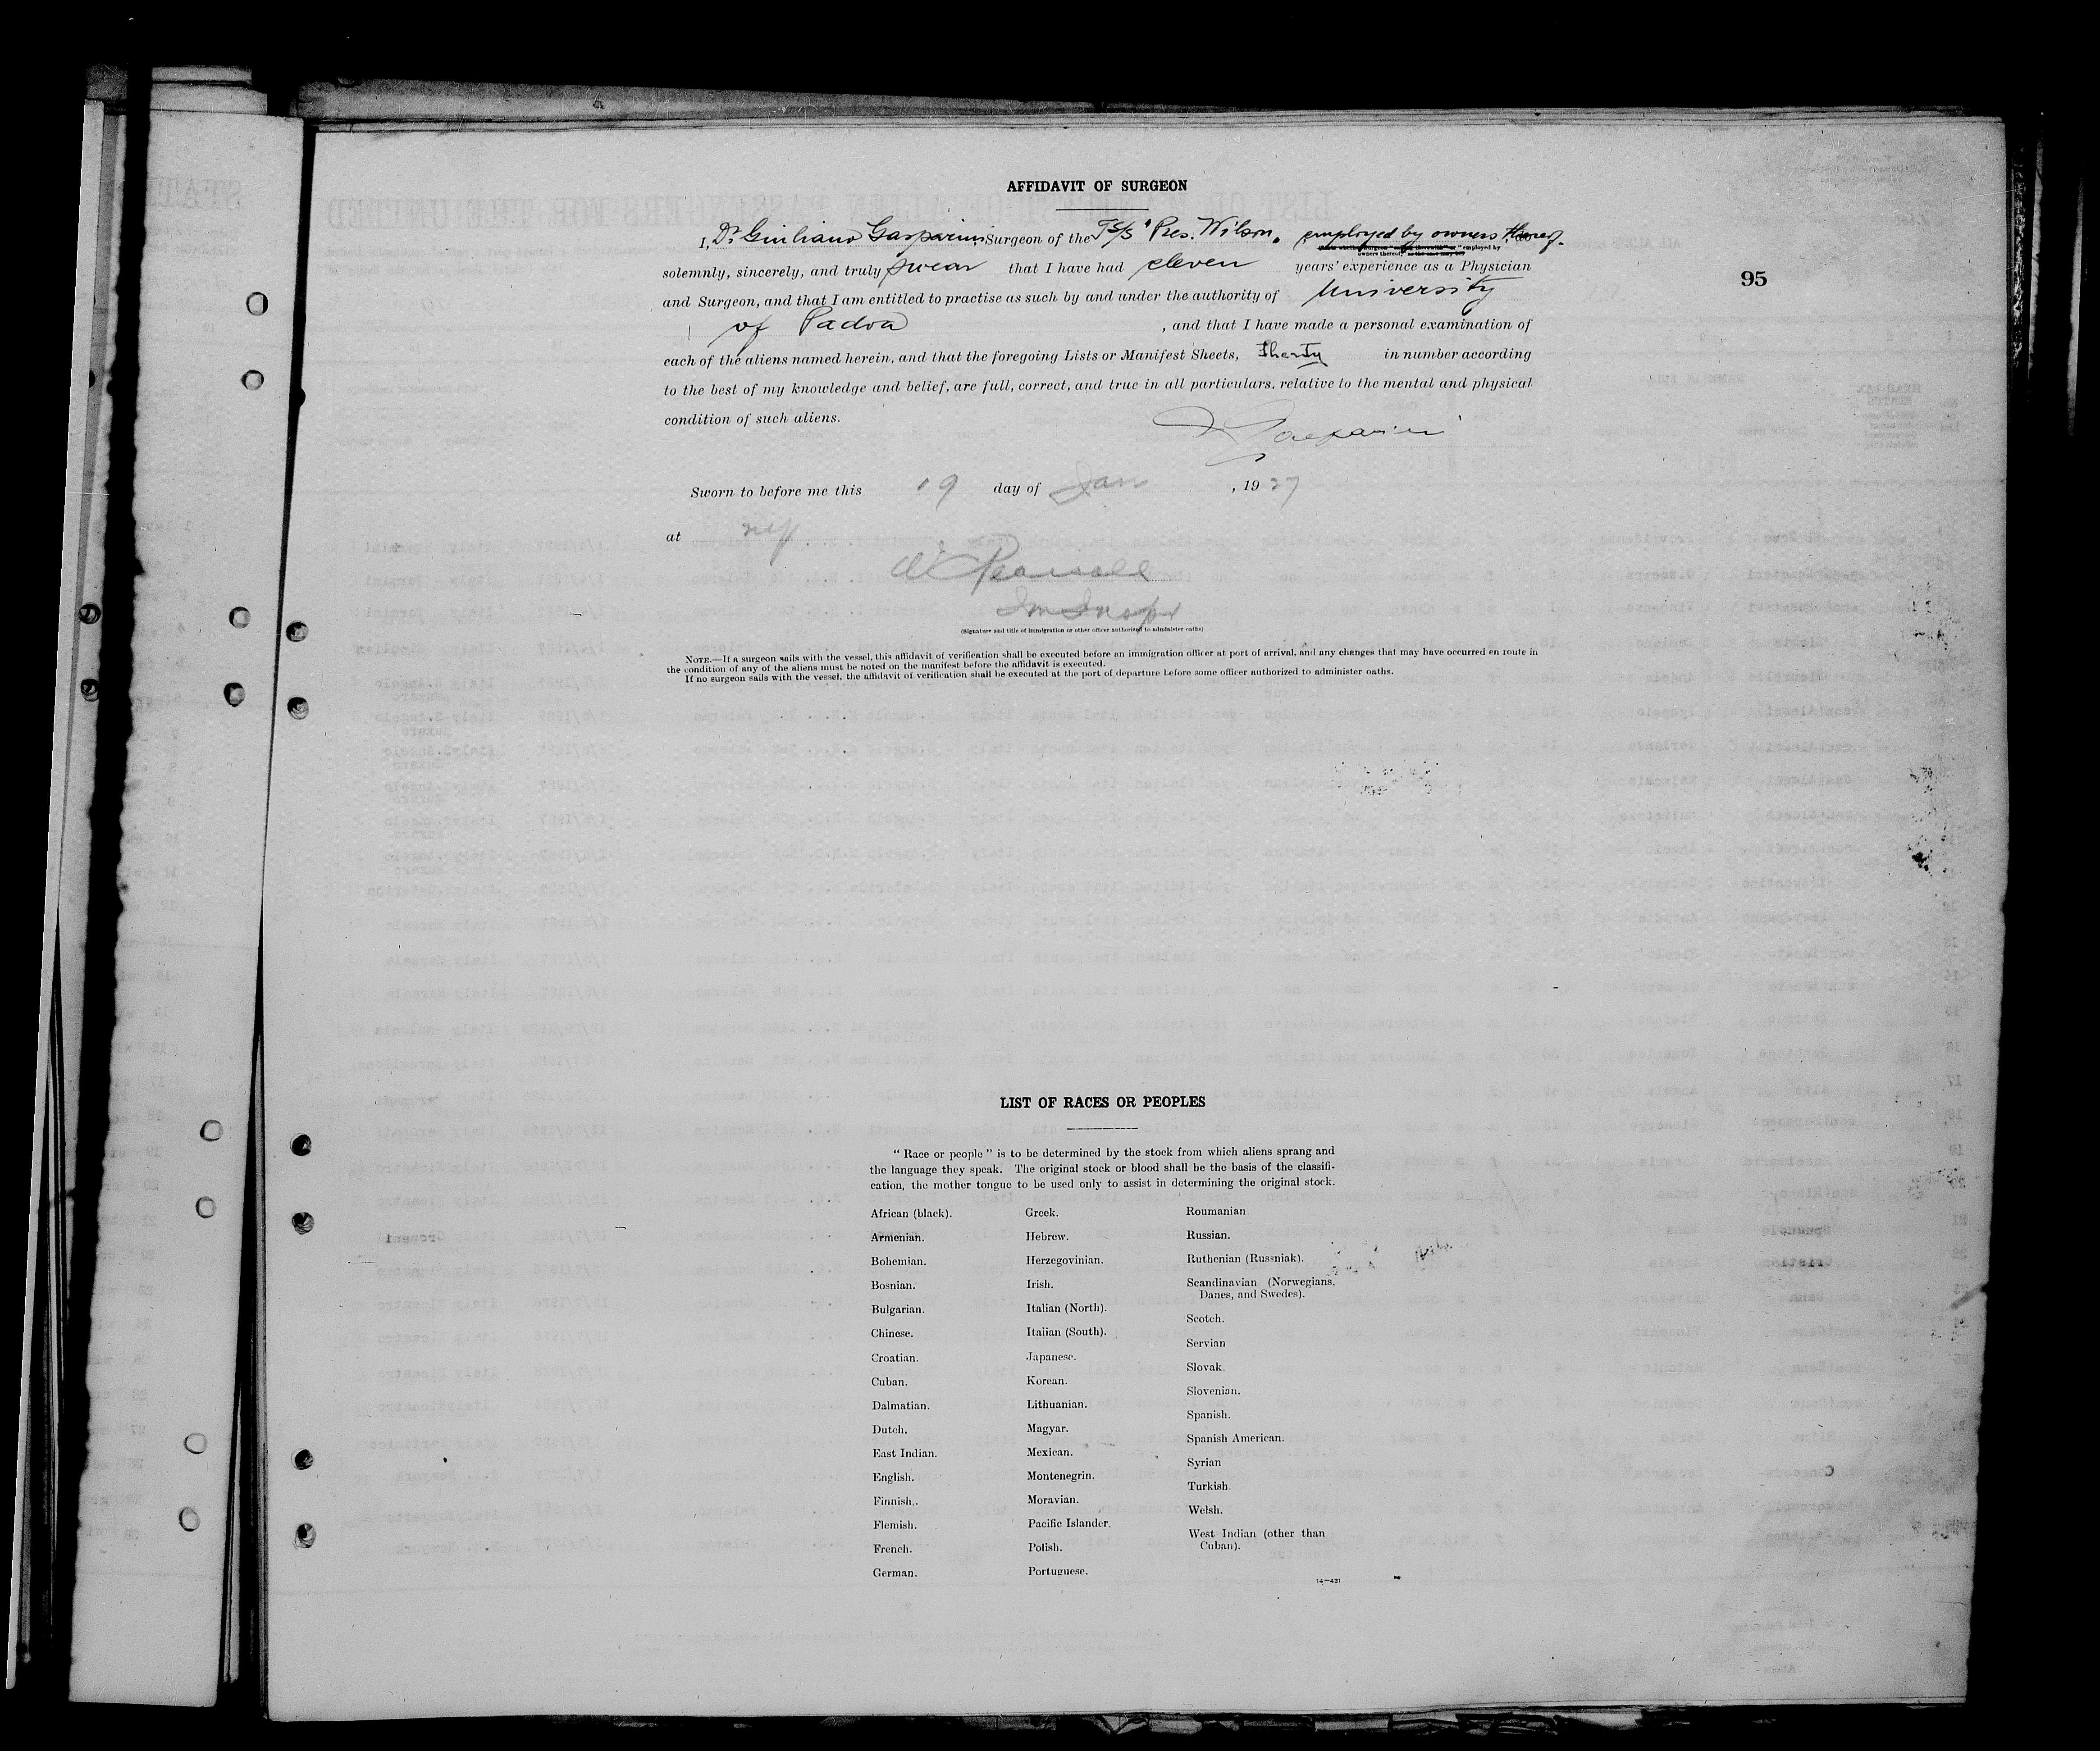 AFFIDAVIT OF SURGEON
I, Dr Giuliano Gasparini Surgeon of the TS/S "Pres. Wilson, employed by owners thereof.
solemnly, sincerely, and truly swear that I have had eleven years' experience as a Physician
95
and Surgeon, and that I am entitled to practise as such by and under the authority of University
of Padva , and that I have made a personal examination of
each of the aliens named herein, and that the foregoing Lists or Manifest Sheets, Therty in number according
to the best of my knowledge and belief, are full, correct, and true in all particulars, relative to the mental and physical
condition of such aliens.
Gasparini
Sworn to before me this 19 day of Jan , 1927
at ny
Pearsall
Im Insp
(Signature and title of immigration or other officer authorized to administer oaths)
NOTE.—If a surgeon sails with the vessel, this affidavit of verification shall be executed before an immigration officer at port of arrival, and any changes that may have occurred en route in
the condition of any of the aliens must be noted on the manifest before the affidavit is executed.
If no surgeon sails with the vessel, the affidavit of verification shall be executed at the port of departure before some officer authorized to administer oaths.
LIST OF RACES OR PEOPLES
" Race or people " is to be determined by the stock from which aliens sprang and
the language they speak. The original stock or blood shall be the basis of the classifi-
cation, the mother tongue to be used only to assist in determining the original stock.
African (black).
Armenian.
Bohemian.
Bosnian.
Bulgarian.
Chinese.
Croatian.
Cuban.
Dalmatian.
Dutch.
East Indian.
English.
Finnish.
Flemish.
French.
German.
Greek.
Hebrew.
Herzegovinian.
Irish.
Italian (North).
Italian (South).
Japanese.
Korean.
Lithuanian.
Magyar.
Mexican.
Montenegrin.
Moravian.
Pacific Islander.
Polish.
Portuguese.
Roumanian
Russian.
Ruthenian (Russniak).
Scandinavian (Norwegians,
Danes, and Swedes).
Scotch.
Servian
Slovak.
Slovenian.
Spanish.
Spanish American.
Syrian
Turkish.
Welsh.
West Indian (other than
Cuban).
14—421